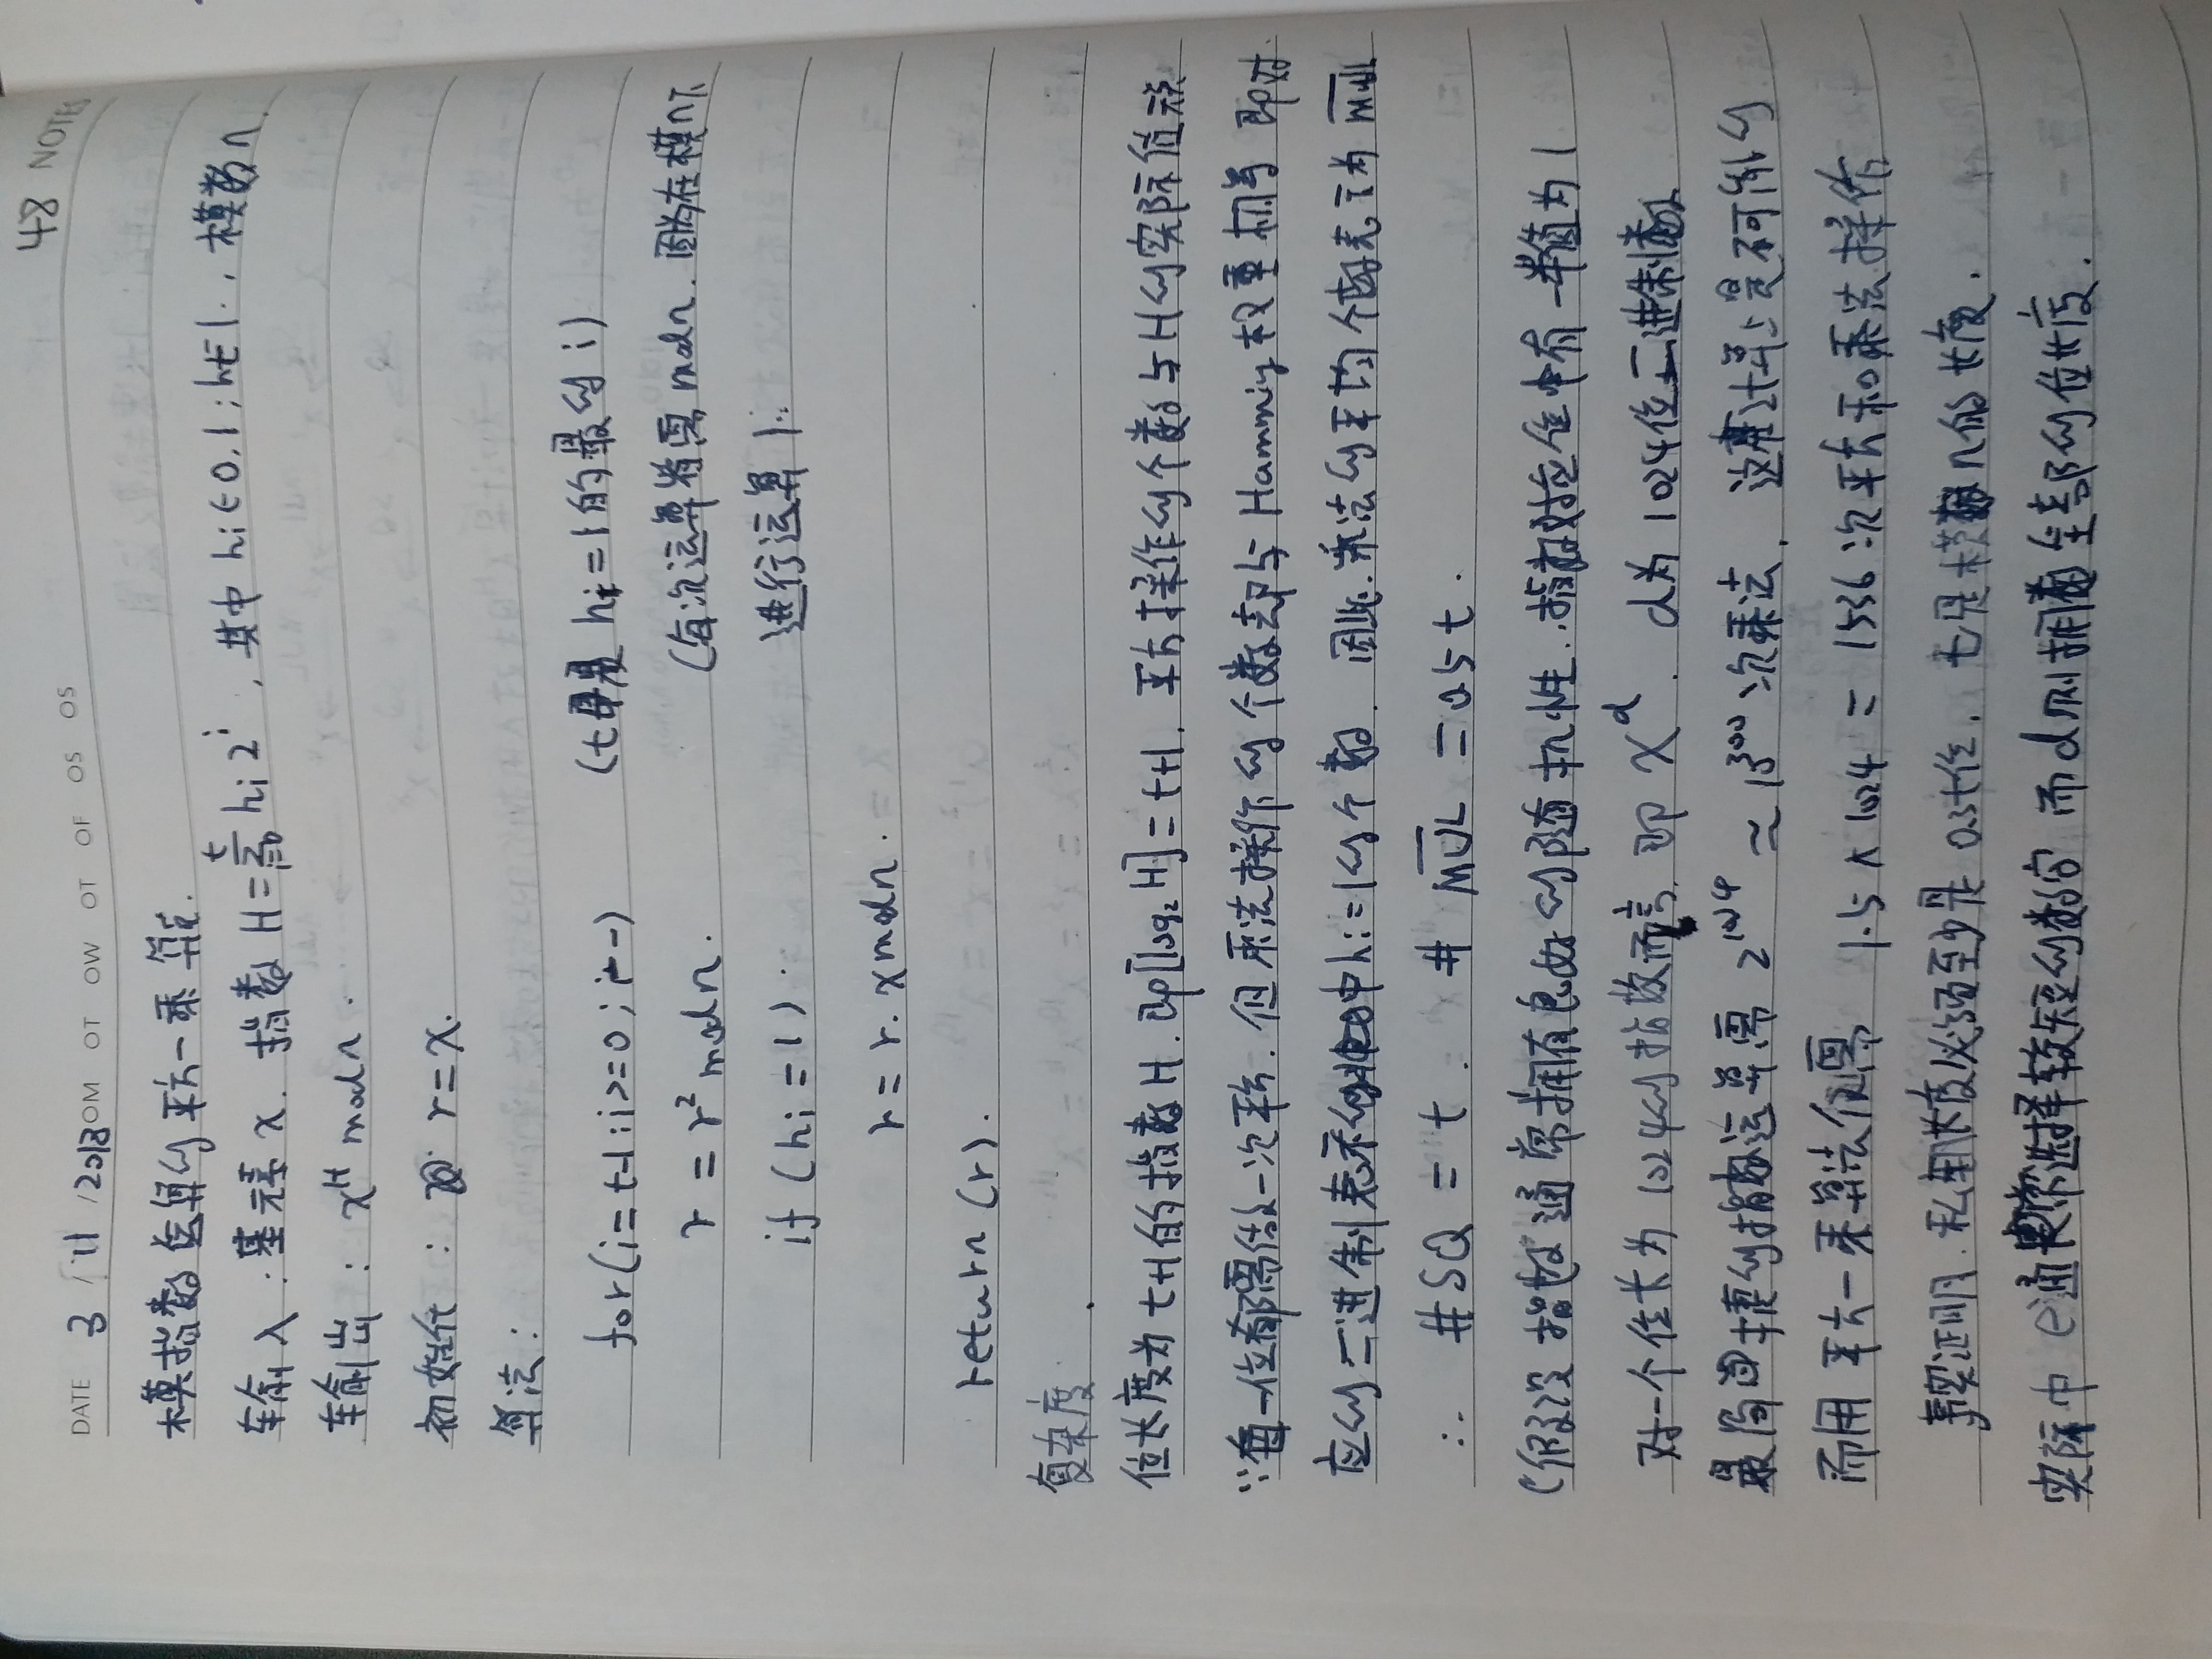 48 NOTES
DATE 3 / 11 / 2018 OM OT OW OT OF OS OS
模指数运算的平方一乘算法.
输入:基元素 x. 指数 H = ∑_{i=0}^{t} h_i 2^i , 其中 h_i ∈ 0,1; h_t=1. , 模数 n.
输出: x^H mod n.
初始化: r = x.
算法:
for(i=t-1;i>=0;i--) (t是 h_i=1的最的 i)
r = r² mod n. (每次运算都需 mod n. 因为在模n下
if (h_i = 1) 进行运算).
r = r. x mod n.
return (r).
复杂度.
位长度为 t+1的指数 H. 即[log₂ H] = t+1. 平方操作的个数与H的实际值无关
∵每一位都需做一次平方. 但乘法操作的个数却与 Hamming 权重相等 即对
应的二进制表示中 h_i=1的个数. 因此. 乘法的平均个数表示为 \overline{MUL}
∴ #SQ = t. # \overline{MUL} = 0.5t.
(假设指数通常拥有良好的随机性.. 指数对应位中有一半值为 1
对一个位长为 1024的指数而言. 即 x^d. d为 1024位二进制数
最简捷的指数运算需 2^{1024} ≈ 10^{300} 次乘法. 这在计算上是不可能的
而用平方一乘算法仅需 1.5 × 1024 = 1536 次平方和乘法操作
事实证明. 私钥长度必须至少是 0.3t位. t是模数n的长度.
实际中 e通常选择较短的数字 而d则拥有全部的位长度.